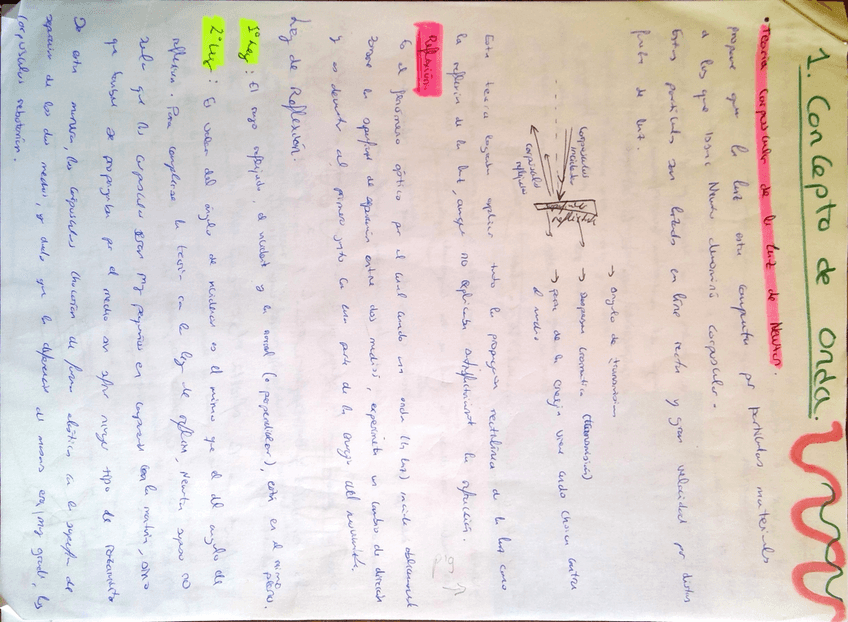 1. Concepto de onda.
• Teoría corpuscular de la luz de Newton.
propone que la luz está compuesta por partículas materiales
a las que Isaac Newton denominó corpúsculos.
Estas partículas son lanzadas en línea recta y gran velocidad por
fuente de luz.
corpúsculos
incidentes
corpúsculos
reflejados
→ ángulo de transmisión
→ dispersión cromática (transmisión)
→ parte de la energía viene cuando chocan contra
el medio
Esta teoría lograba explicar tanto la propagación rectilínea de la luz como
la reflexión de la luz, aunque no explicaba satisfactoriamente la refracción.
Reflexión
Es el fenómeno óptico por el cual cuando una onda (la luz) incide oblicuamente
sobre la superficie de separación entre dos medios, experimenta un cambio de dirección
y es devuelta al primer medio junto con una parte de la energía del movimiento.
Ley de Reflexión.
1ª Ley: El rayo reflejado, el incidente y la normal (o perpendicular), están en el mismo plano.
2ª Ley: El valor del ángulo de incidencia es el mismo que el del ángulo de
reflexión. Para completar la teoría con la ley de reflexión, Newton supuso
que los corpúsculos son muy pequeños en comparación con la materia,
que se propagan por el medio sin sufrir ningún tipo de rozamiento
De esta manera, los corpúsculos chocarían de forma elástica en la superficie de
separación de los dos medios, y dado que la diferencia de masas era muy grande, los
corpúsculos rebotarían.